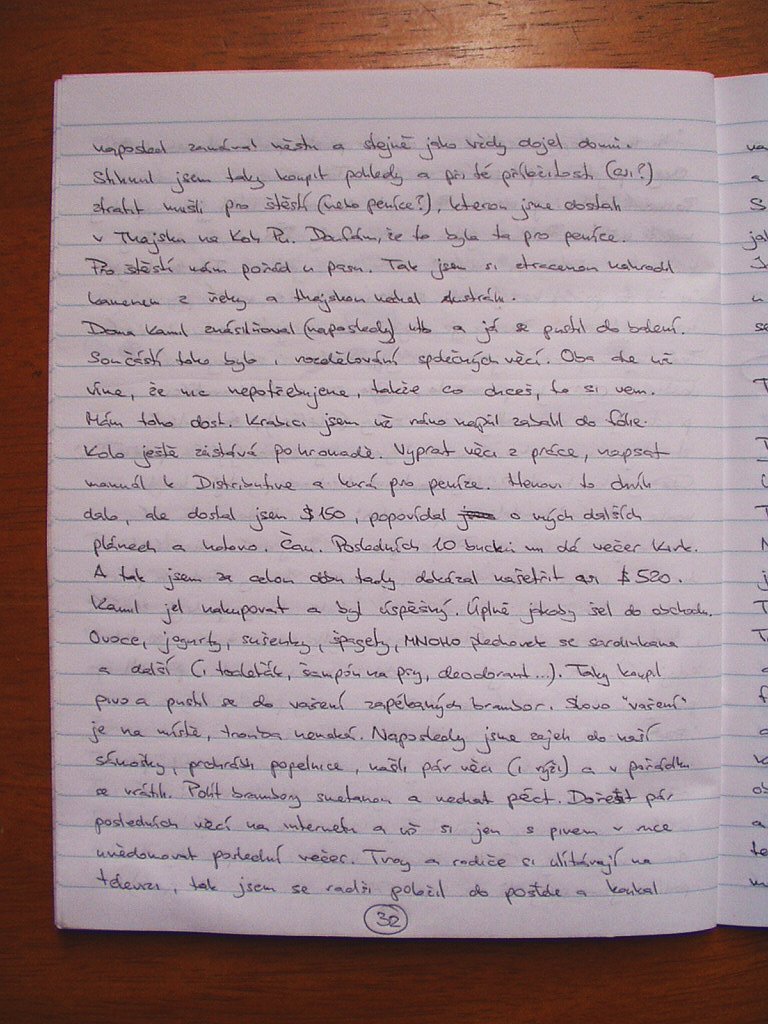 naposled zamával městu a stejně jako vždy dojel domů.
Stihnul jsem taky koupit pohledy a při té příležitosti (asi?)
ztratit mušli pro štěstí (nebo peníze?), kterou jsme dostali
v Thajsku na Koh Pu. Doufám, že to byla ta pro peníze.
Pro štěstí mám pořád u pasu. Tak jsem si ztracenou nahradil
kamenem z řeky a thajskou nechal
Doma Kamil znásilňoval (naposledy) a já se pustil do balení.
Součástí toho bylo i rozdělování společných věcí. Oba ale už
víme, že nic nepotřebujeme, takže co chceš, to si vem.
Mám toho dost. Krabici jsem už ráno napůl zabalil do fólie.
Kolo ještě zůstává pohromadě. Vyprat věci z práce, napsat
manuál k Distributive a hurá pro peníze. Henovi to dník
dalo, ale dostal jsem $150, popovídal o mých dalších
plánech a hotovo. Čau. Posledních 10 bucků mi dá večer Kirk.
A tak jsem za celou dobu tady dokázal našetřit asi $520.
Kamil jel nakupovat a byl úspěšný. Úplně jakoby šel do obchodu.
Ovoce, jogurty, sušenky, špagety, MNOHO plechovek se sardinkama
a další (i toaleťák, šampón na psy, deodorant...). Taky koupil
pivo a pustil se do vaření zapékaných brambor. Slovo "vaření"
je na místě, trouba nemaká. Naposledy jsme zajeli do naší
sámošky, prohrábli popelnice, našli pár věcí (i rýži) a v pořádku
se vrátili. Polít brambory smetanou a nechat péct. Dořešit pár
posledních věcí na internetu a už si jen s pivem v ruce
uvědomovat poslední večer. Troy a rodiče si ulítávají na
televizi, tak jsem se radši položil do postele a koukal
32